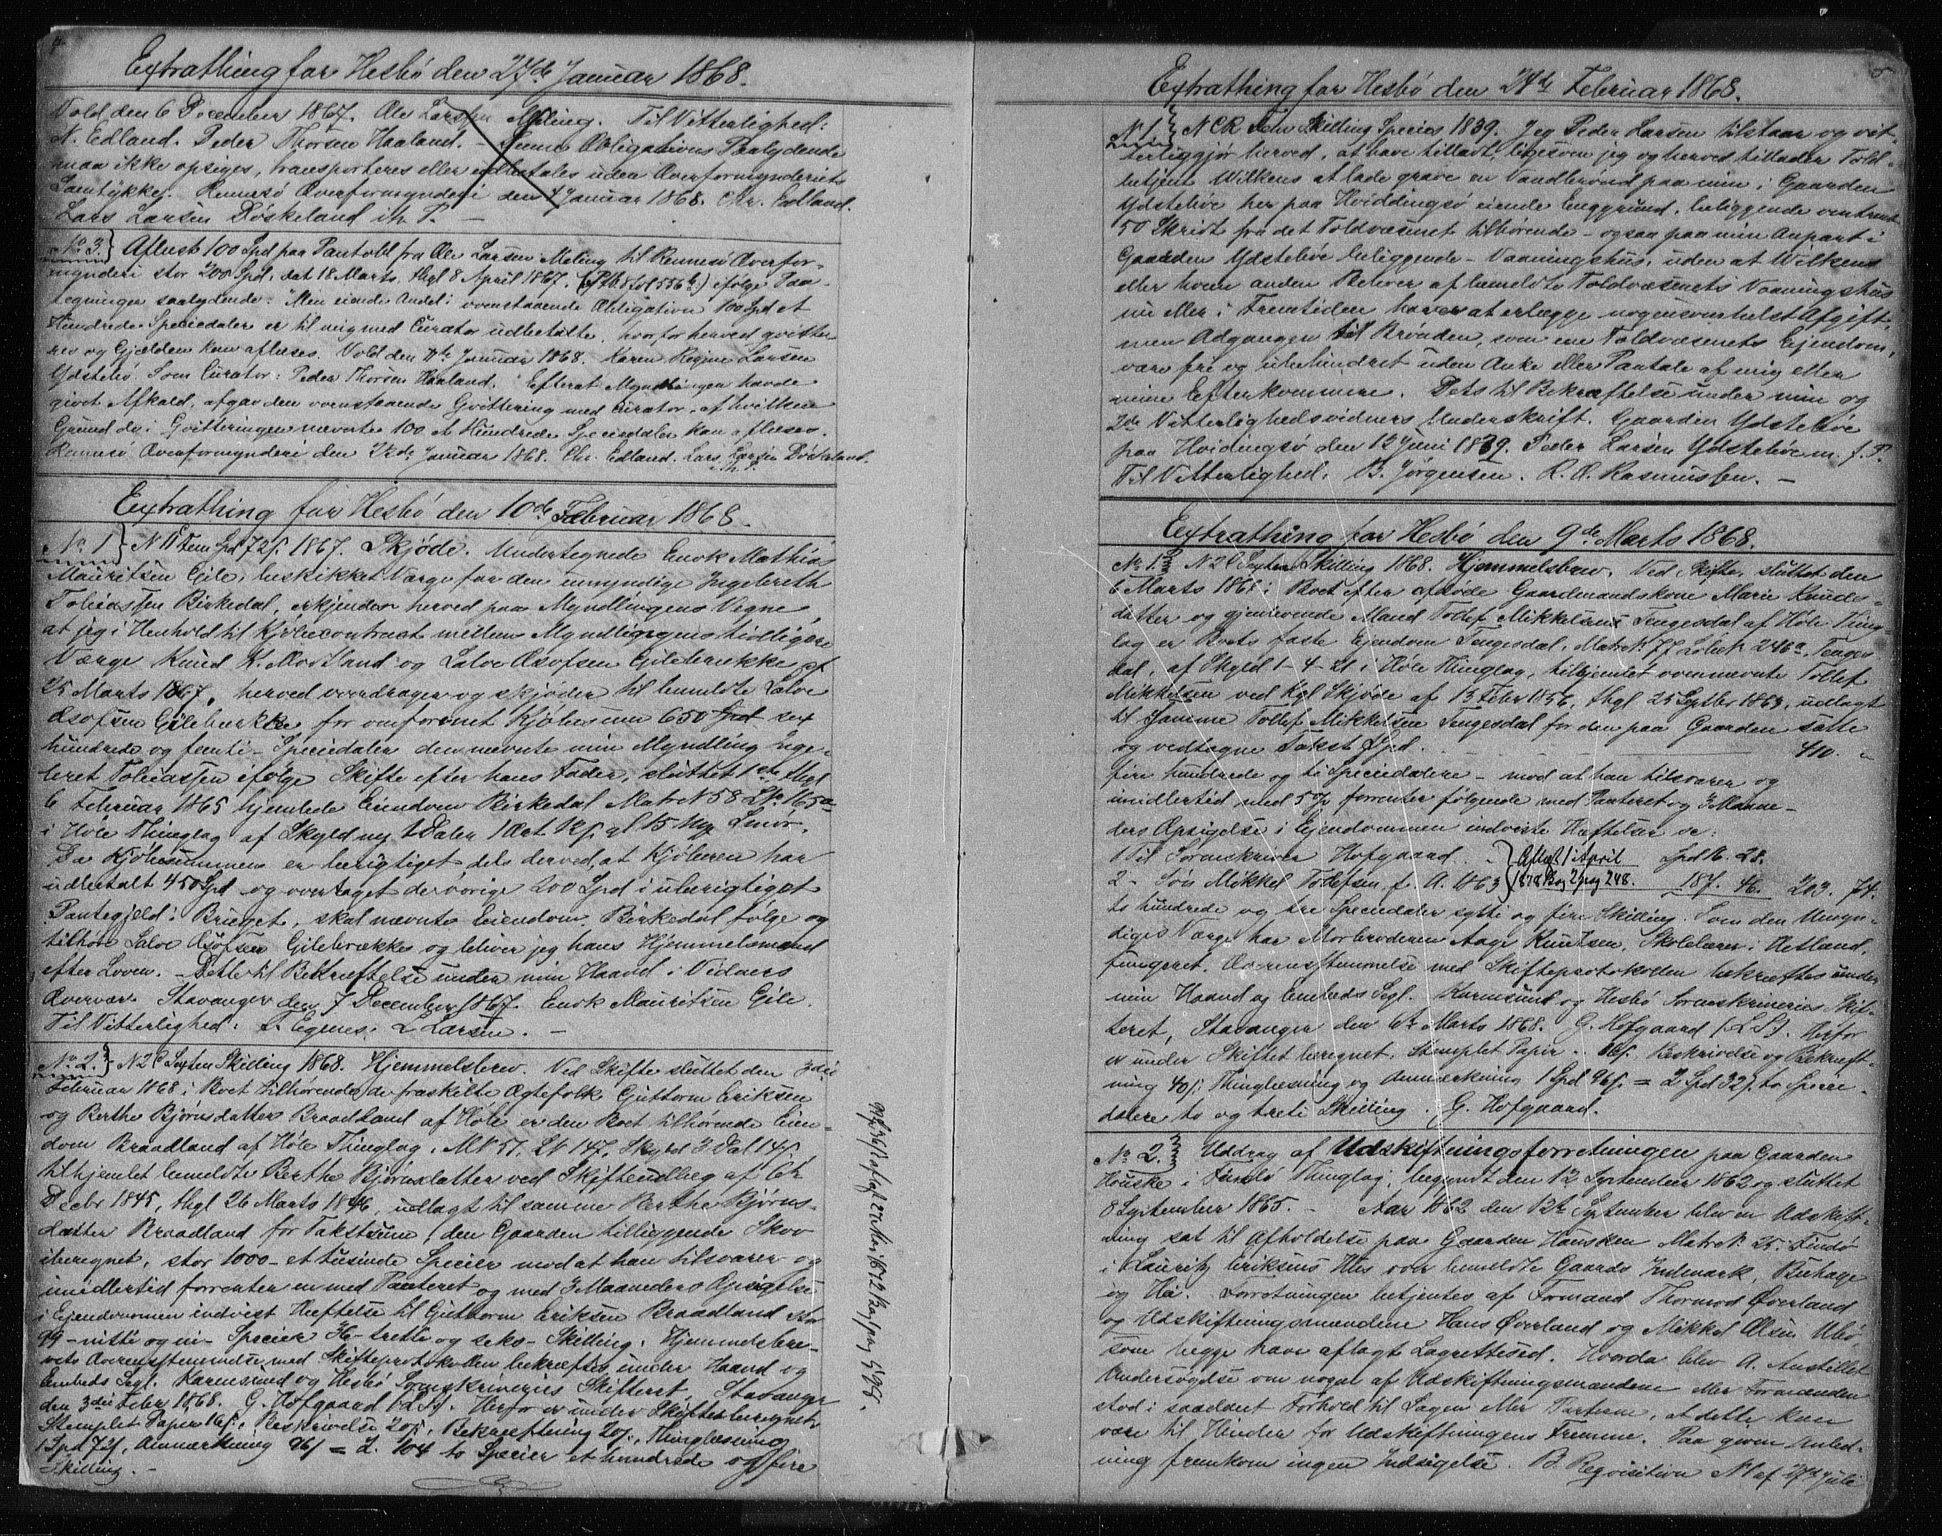 4
Extrathing for Hesbö den 27de Januar 1868.
Vold den 6 December 1867. Ole Larsen Meling. Til Vitterlighed:
N. Edland. Peder Thorsen Haaland. – Denne Obligations Paalydende
maa ikke opsiges, transporteres eller udbetales uden Overformynderiets
Samtykke. Rennesö Overformynderi den 4 Januar 1868. Chr. Edland.
Lars Larsen Döskeland m. P. –
No 3 } Aflæst 100 Spd paa Pantobl. fra Ole Larsen Meling til Rennesö Overfor-
mynderi stor 200 Spd, dat 18 Marts, thgl 8 April 1867. (Ptb 8 fol 556b) ifölge Paa-
tegninger saalydende: "Min eiende Andel i ovenstaaende Obligation 100 Spd et
Hundrede Speciedaler er til mig med Curator udbetalte, hvorfor herved qvitte-
res og Gjælden kan aflæses. Vold den 11te Januar 1868. Karen Regine Larsen
Ydstebö. Som Curator: Peder Thorsen Haaland. Efterat Myndlingen havde
givet Afkald, afgav den ovenstaaende Qvittering med Curator, af hvilken
Grund de i Qvitteringen nævnte 100 et Hundrede Speciedaler kan aflæses.
Rennesö Overformynderi den Januar 1868. Chr. Edland. Lars Larsen Döskeland.
m. P.
Extrathing for Hesbö den 10de Februar 1868.
No 1 } N 11 Fem Spd 72 s. 1867. Skjöde. Undertegnede Enok Mathias
Mauritsen Eile, beskikket Værge for den umyndige Ingebreth
Tobiassen Birkedal, erkjender herved paa Myndlingens Vegne,
at jeg i Henhold til Kjöbecontract mellem Myndlingens tidligere
Værge Knud K. Østland og Salve Osofsen Gilebrække af
25 Marts 1867, herved overdrager og skjöder til bemeldte Salve
Osofsen Gilebrække for omforenet Kjöbesum 650 Spd sex
hundrede og femti – Speciedaler den nævnte min Myndling Inge-
bret Tobiassen ifölge Skifte efter hans Fader, sluttet 1ste thgl
6 Februar 1865 hjemlede Eiendom Birkedal Matr N 58 LNr 165a
i Höle Thinglag af Skyld ny 1 Daler 1 Ort 12 s. gl 15 Mrk Smör.
Da Kjöbesummen er berigtiget dels derved, at Kjöberen har
udbetalt 450 Spd og overtaget de övrige 200 Spd i uberigtiget
Pantegjeld i Bruget, skal nævnte Eiendom Birkedal fölge og
tilhöre Salve Osöfsen Gilebrække og bliver jeg hans Hjemmelsmand
efter Loven. – Dette til Bekræftelse under min Haand i Vidners
Overvær. Stavanger den 7 December 1867. Enok Mauritsen Eile.
Til Vitterlighed: T. Egenes. L Larsen. –
No 2. } N 2C Syvten Skilling 1868. Hjemmelsbrev. Ved Skifte sluttet den 3die
Februar 1868 i Boet tilhörende de fraskilte Ægtefolk Guttorm Eriksen
og Berthe Björnsdatter Braadland af Höle er den Boet tilhörende Eien-
dom Braadland af Höle Thinglag, MN 51, LN 147, Skyld 3 Dal 14 s.
tilhjemlet bemeldte Berthe Björnsdatter ved Skifteudlæg af 6te
Decbr 1845, thgl 26 Marts 1846, udlagt til samme Berthe Björns-
datter Braadland for Takstsum, den Gaarden tilliggende Skov
iberegnet, stor 1000 – et tusinde Specier mod at han tilsvarer og
imidlertid forrenter en med Panteret og med 3 Maaneders Opsigelse
i Ejendommen indvist Hæftelse til Guttorm Eriksen Braadland stor
99 – nitti og ni – Specier 36 – tretti og seks – Skilling. Hjemmelsbre-
vets Overensstemmelse med Skifteprotokollen bekræftes under Haand og
Embeds Segl. Karmsund og Hesbö Sorenskriveries Skifteret, Stavanger
den 3die Febr 1868. G. Hofgaard (L.S.). Herfor er under Skiftet beregnet
Stemplet Papir 16 s., Beskrivelse 20 s., Bekræftning 20 s., Thinglæsning
1 Spd 72 s, Anmærkning 96 s = 2. 104 to Specier et hundrede og fire
Skilling. –
5
Extrathing for Hesbö den 24de Februar 1868.
N 1. } N CR Skilling Species 1839. Jeg Peder Larsen tilstaar og vit-
terliggjör herved, at have tilladt, ligesom jeg og herved tillader Told-
betjent Wilkens at lade grave en Vandbrönd paa min i Gaarden
Ydstebö her paa Hviddingsö eiende Enggrund, beliggende omtrent
50 Skridt fra det Toldvæsenet tilhörende – ogsaa paa min Anpart i
Gaarden Ydstebö beliggende – Vaaningshus, uden at Wilkens
eller hvem anden Beboer af bemeldte Toldvæsenets Vaaningshus
nu eller i Fremtiden haver at erlægge nogensomhelst Afgift,
men Adgangen til Brönden, som en Toldvæsenets Ejendom,
være fri og ubehindret uden Anke eller Paatale af mig eller
mine Efterkommere. Dets til Bekræftelse under min og
2de Vitterlighedsvidners Underskrift. Gaarden Ydstebö
paa Hvidingsö den 12 Juni 1839. Peder Larsen Ydstebö m. f. P.
Til Vitterlighed: B. Jorgensen. R. A. Rasmussen. –
Extrathing for Hesbö den 9de Marts 1868.
No 1. } N 2C Syvten Skilling 1868. Hjemmelsbrev. Ved Skifte, sluttet den
6 Marts 1868 i Boet efter afdöde Gaardmandskone Marie Knuds-
datter og gjenlevende Mand Tollef Mikkelsen Tengesdal af Höle Thing-
lag er Boets faste Ejendom Tengesdal, Matr N 77 Löbe N 246a, Tenges-
dal, af Skyld 1 – 4 – 21 i Höle Thinglag, tilhjemlet ovennævnte Tollef
Mikkelsen ved Kgl Skjöde af 13 Febr 1856, thgl 25 Septbr 1863, udlagt
til samme Tollef Mikkelsen Tengesdal for den paa Gaarden satte
og vedtagne Takst Spd. 410. „
fire hundrede og ti Speciedalere – mod at han tilsvarer og
imidlertid med 5 % forrenter fölgende med Panteret og 3 Maane-
ders Opsigelse i Ejendommen indviste Hæftelser se:
1 Til Sorenskriver Hofgaard . . } Aflæst 1 April Spd 16. 28.
2 – Sön Mikkel Tollefsen f. A. 1863 } 1878 Bog 2 pag 248. 187. 46. 203. 74.
to hundrede og tre Speciedaler sytti og fire Skilling. Som den Umyn-
diges Værge har Morbroderen Aage Knutsen, Skolelærer i Hetland,
fungeret. Overensstemmelse med Skifteprotokollen bekræftes under
min Haand og Embeds Segl. Karmsund og Hesbö Sorenskriveries Skif-
teret, Stavanger den 6te Marts 1868. G. Hofgaard (L.S). Herfor
er under Skiftet beregnet: Stemplet Papir . . 16 s. Beskrivelse og Bekræft-
ning 40 s. Thinglæsning og Anmærkning 1 Spd 96 s. = 2 Spd 32 s. to Specie-
dalere to og treti Skilling. G. Hofgaard.
No 2. } Uddrag af Udskiftningsforretningen paa Gaarden
Houske i Findö Thinglag, begyndt den 12 September 1862 og sluttet
8 September 1865. – Aar 1862 den 12te September blev en Udskift-
ning sat til Afholdelse paa Gaarden Hausken Matr N. 25. Findö
i Lauritz Eriksens Hus over bemeldte Gaards Indmark, Buhage
og Hei. Forretningen betjentes af Formand Thormod Överland
og Udskiftningsmændene Hans Överland og Mikkel Olsen Ubö
som begge have aflagte Lagrettesed. Hvorda blev A. Anstillet
Undersögelse om nogen af Udskiftningsmændene eller Formanden
stod i saadant Forhold til Sagen eller Parterne, at dette kan
være til Hinder for Udskiftningens Fremme. Paa given Anled-
ning fremkom ingen Indsigelse. B. Reqvisition N 1 af 27de Juli